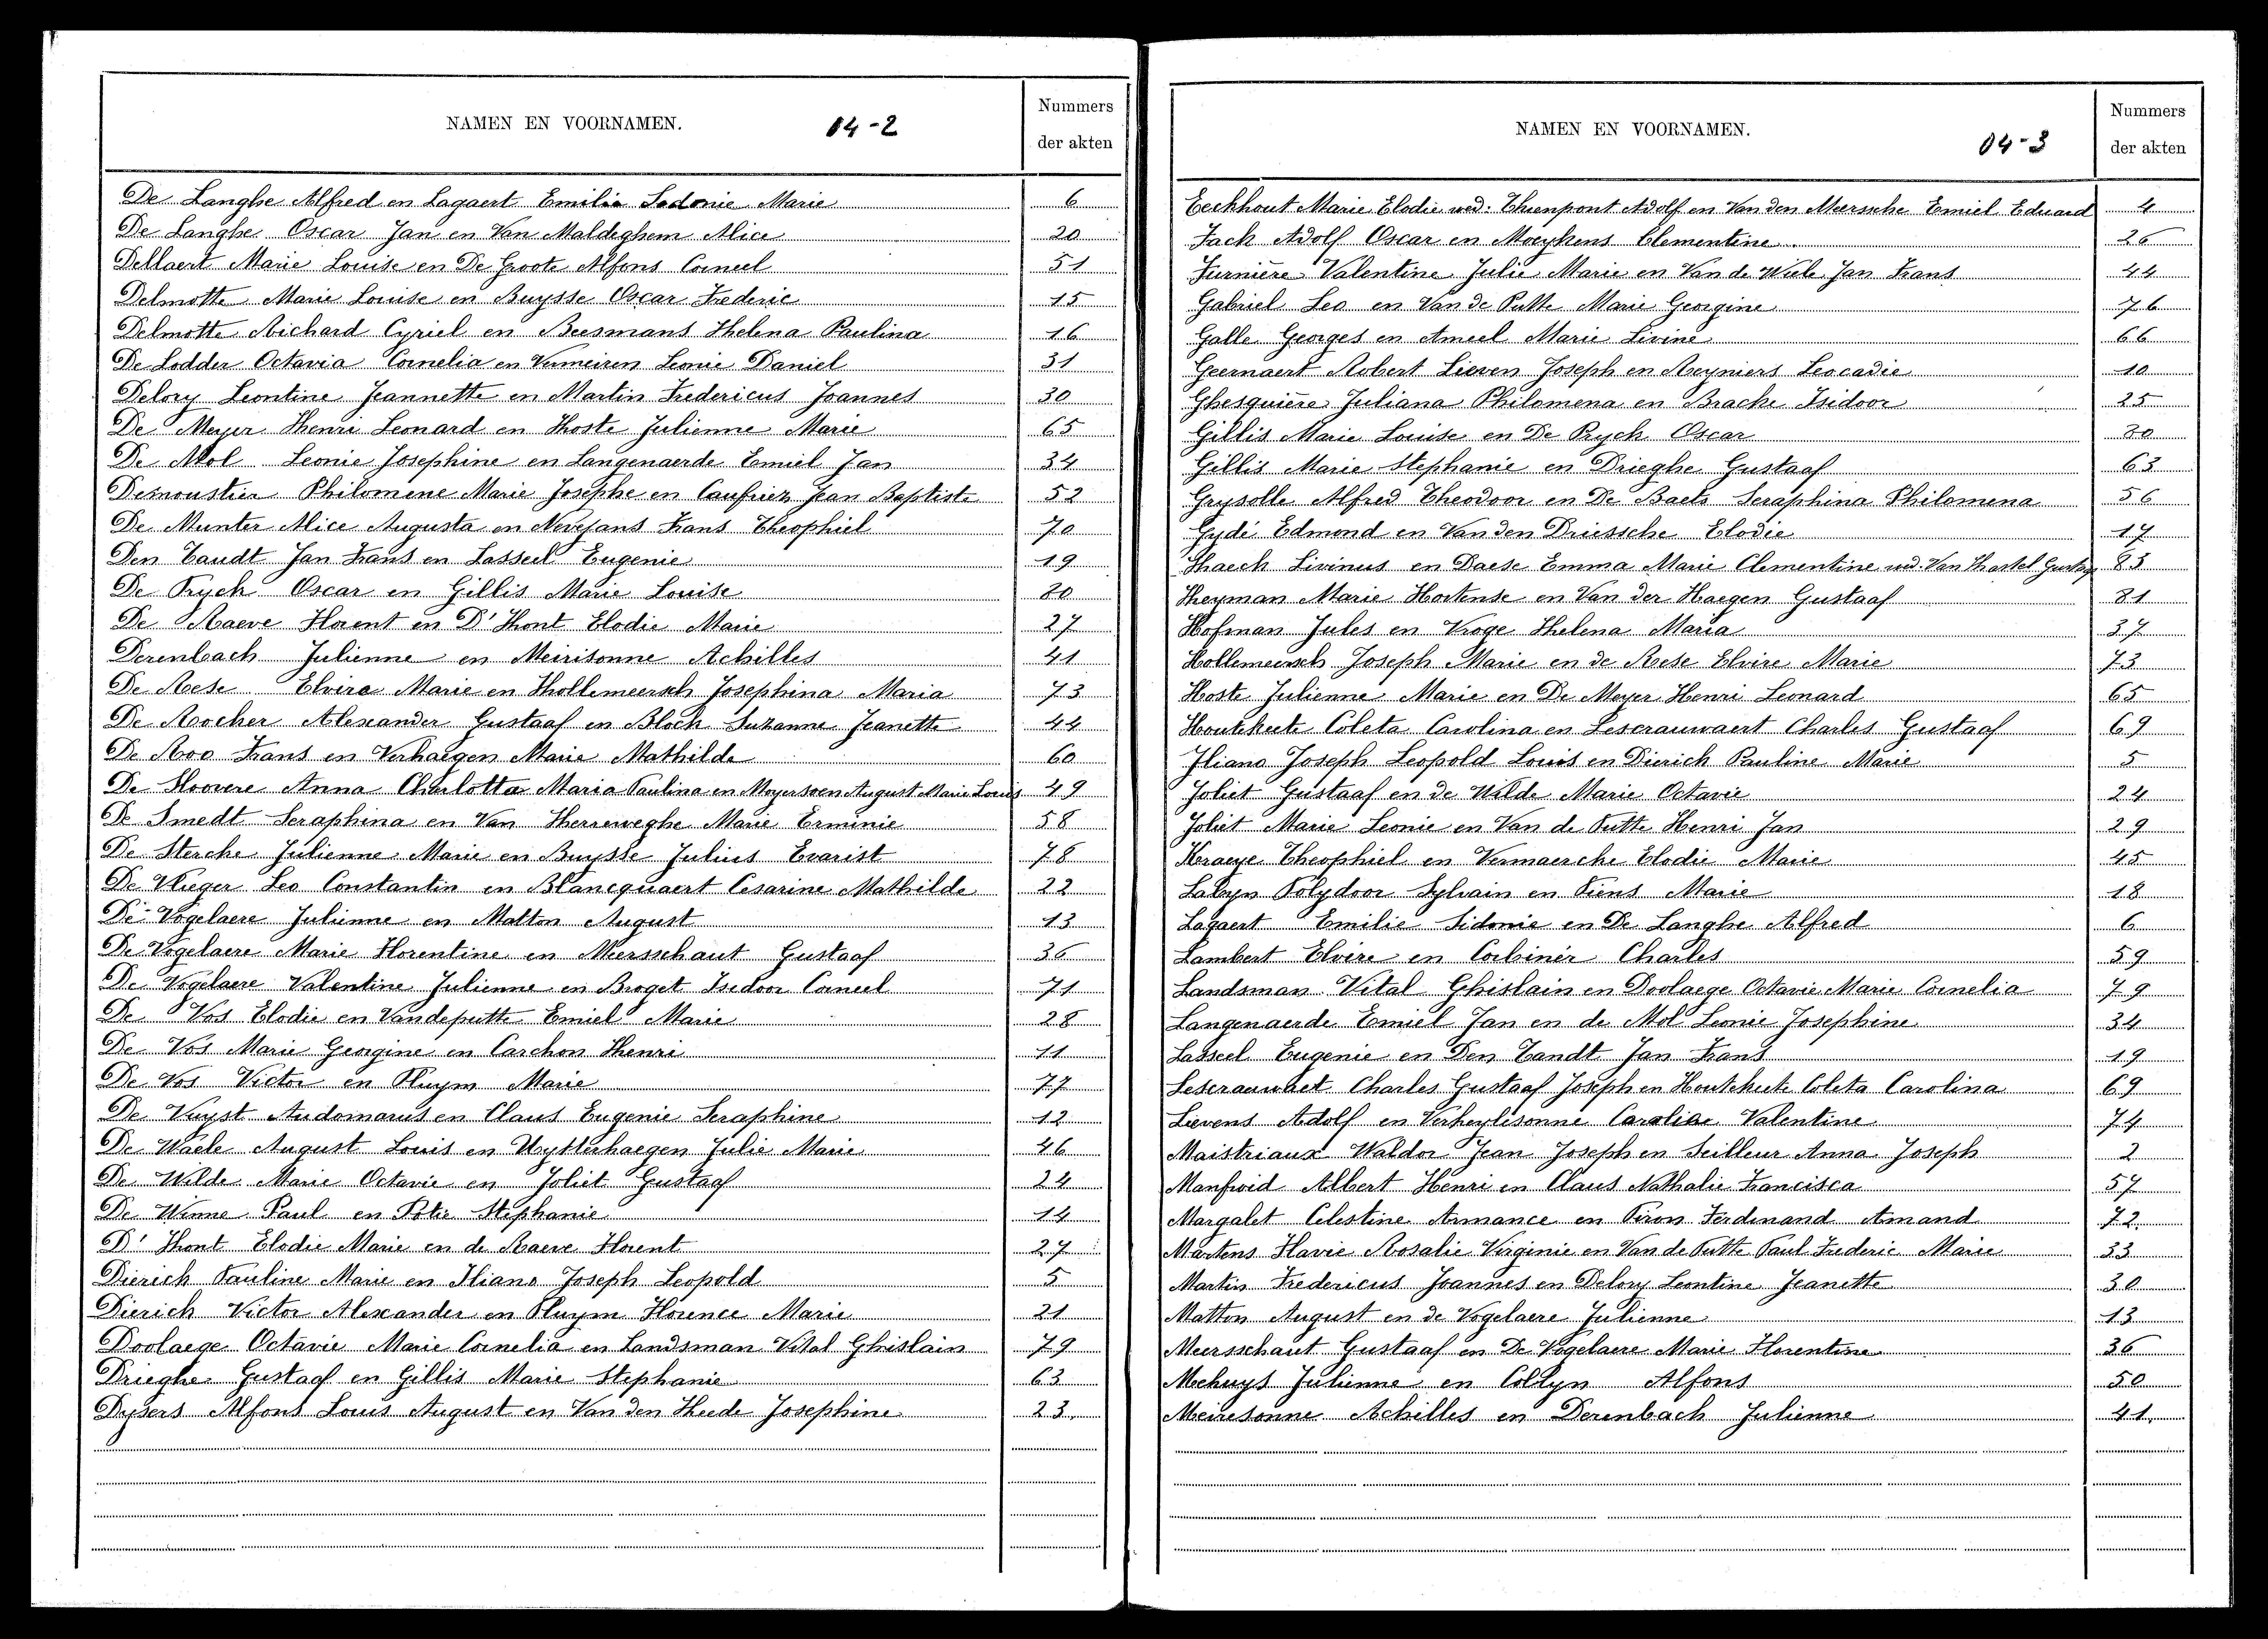 NAMEN EN VOORNAMEN. 04-2 Nummers der akten
De Langhe Alfred en Lagaert Emilia Sidonie Marie 6
De Langhe Oscar Jan en Van Maldeghem Alice 20
Dellaert Marie Louise en De Groote Alfons Corneel 51
Delmotte Marie Louise en Buysse Oscar Frederic 15
Delmotte Richard Cyriel en Beesmans Helena Paulina 16
De Lodder Octavia Cornelia en Vermeiren Leonie Daniel 31
Delory Leontine Jeannette en Martin Fredericus Joannes 30
De Meyer Henri Leonard en Hoste Julienne Marie 65
De Mol Leonie Josephine en Langenaerde Emiel Jan 34
Demoustier Philomene Marie Josephe en Caufriez Jean Baptiste 52
De Munter Alice Augusta en Nevejans Frans Theophiel 70
Den Tandt Jan Frans en Lasseel Eugenie 19
De Pryck Oscar en Gillis Marie Louise 80
De Raeve Florent en D'Hont Elodie Marie 27
Derenbach Julienne en Meirisonne Achilles 41
De Rese Elvire Marie en Hollemeersch Josephina Maria 73
De Rocker Alexander Gustaaf en Block Suzanne Jeanette 44
De Roo Frans en Verhaegen Marie Mathilde 60
De Sloovere Anna Charlotta Maria Paulina en Moyersoen August Marie Louis 49
De Smedt Seraphina en Van Herreweghe Marie Erminie 58
De Sterke Julienne Marie en Buysse Julius Evarist 78
De Vlieger Leo Constantin en Blancquaert Cesarine Mathilde 22
De Vogelaere Julienne en Matton August 13
De Vogelaere Marie Florentine en Meersschaut Gustaaf 36
De Vogelaere Valentine Julienne en Broget Isidoor Corneel 71
De Vos Elodie en Vandeputte Emiel Marie 28
De Vos Marie Georgine en Carchon Henri 11
De Vos Victor en Pluym Marie 77
De Vuyst Audomarus en Claus Eugenie Seraphine 12
De Waele August Louis en Uytterhaegen Julie Marie 46
De Wilde Marie Octavie en Joliet Gustaaf 24
De Winne Paul en Potie Stephanie 14
D'Hont Elodie Marie en de Raeve Florent 27
Dierick Pauline Marie en Iliano Joseph Leopold 5
Dierick Victor Alexander en Pluym Florence Marie 21
Doolaege Octavie Marie Cornelia en Landsman Vital Ghislain 79
Drieghe Gustaaf en Gillis Marie Stephanie 63
Dysers Alfons Louis August en Van den Heede Josephine 23
NAMEN EN VOORNAMEN. 04-3 Nummers der akten
Eeckhout Marie Elodie wed. Thienpont Adolf en Van den Meersche Emiel Eduard 4
Fack Adolf Oscar en Moeykens Clementine 26
Furnière Valentine Julie Marie en Van de Wiele Jan Frans 44
Gabriel Leo en Van de Putte Marie Georgine 76
Galle Georges en Ameel Marie Livine 66
Geernaert Robert Lieven Joseph en Reyniers Leocadie 10
Ghesquière Juliana Philomena en Bracke Isidoor 25
Gillis Marie Louise en De Pryck Oscar 80
Gillis Marie Stephanie en Drieghe Gustaaf 63
Grysolle Alfred Theodoor en De Baets Seraphina Philomena 56
Gydé Edmond en Van den Driessche Elodie 17
Haeck Livinus en Daese Emma Marie Clementine wed. Van Hartel Gustaf 83
Heyman Marie Hortense en Van der Haegen Gustaaf 81
Hofman Jules en Kroge Helena Maria 37
Hollemeersch Joseph Marie en de Reese Elvire Marie 73
Hoste Julienne Marie en De Meyer Henri Leonard 65
Houtekeete Coleta Carolina en Lescrauwaert Charles Gustaaf 69
Iliano Joseph Leopold Louis en Dierick Pauline Marie 5
Joliet Gustaaf en de Wilde Marie Octavie 24
Joliet Marie Leonie en Van de Putte Henri Jan 29
Kraeye Theophiel en Vermaercke Elodie Marie 45
Labyn Polydoor Sylvain en Piens Marie 18
Lagaert Emilie Sidonie en De Langhe Alfred 6
Lambert Elvire en Corbinér Charles 59
Landsman Vital Ghislain en Doolaege Octavie Marie Cornelia 79
Langenaerde Emiel Jan en de Mol Leonie Josephine 34
Lasseel Eugenie en Den Tandt Jan Frans 19
Lescrauwaet Charles Gustaaf Joseph en Houtekeete Coleta Carolina 69
Lievens Adolf en Verheylesonne Caroline Valentine 74
Maistriaux Waldor Jean Joseph en Seilleur Anna Joseph 2
Manfroid Albert Henri en Claus Nathalie Francisca 57
Margalet Celestine Armance en Piron Ferdinand Amand 72
Martens Flavie Rosalie Virginie en Van de Putte Paul Frederic Marie 33
Martin Fredericus Joannes en Delory Leontine Jeanette 30
Matton August en de Vogelaere Julienne 13
Meersschaut Gustaaf en De Vogelaere Marie Florentine 36
Mechuys Julienne en Collyn Alfons 50
Meiresonne Achilles en Derenbach Julienne 41